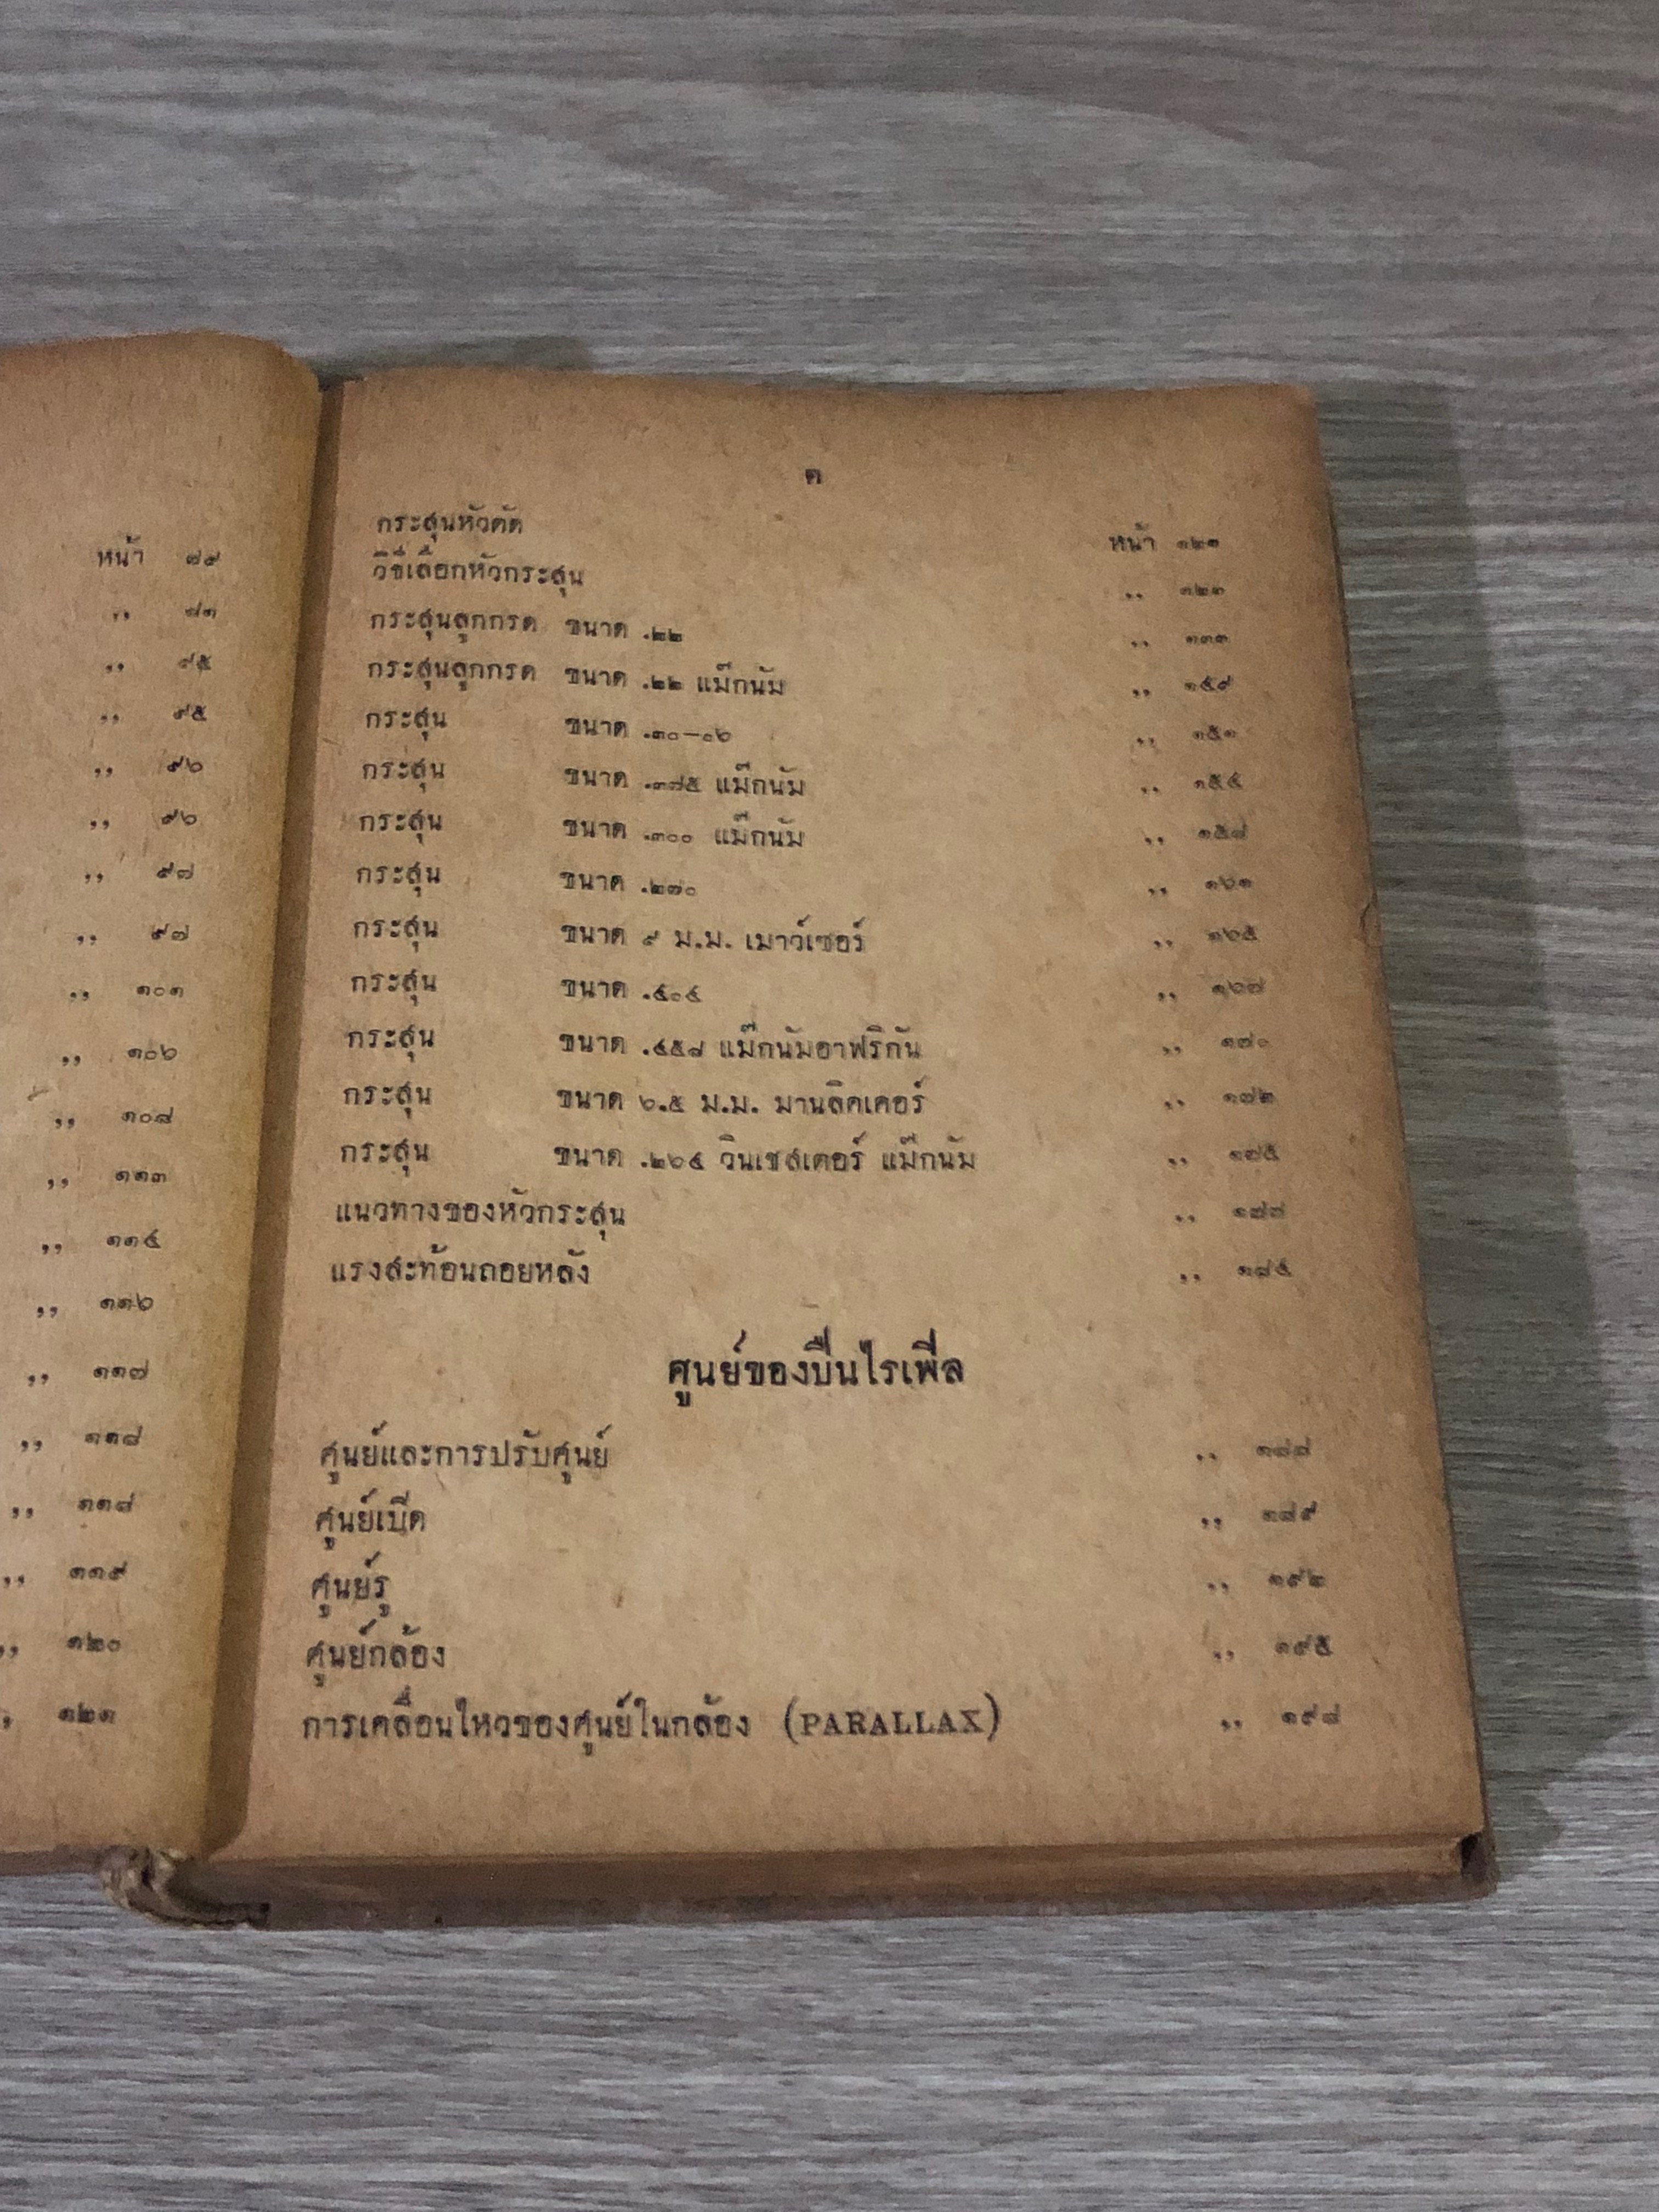 หน้า ๘๙
,, ๘๓
,, ๙๕
,, ๙๕
,, ๙๖
,, ๙๖
,, ๙๗
,, ๙๗
,, ๑๐๑
,, ๑๐๖
,, ๑๐๘
,, ๑๑๓
,, ๑๑๔
,, ๑๑๖
,, ๑๑๗
,, ๑๑๘
,, ๑๑๘
,, ๑๑๙
,, ๑๒๐
,, ๑๒๑
ค
กระสุนหัวตัด หน้า ๑๒๑
วิธีเลือกหัวกระสุน ,, ๑๒๓
กระสุนลูกกรด ขนาด .๒๒ ,, ๑๓๓
กระสุนลูกกรด ขนาด .๒๒ แม๊กนั่ม ,, ๑๔๙
กระสุน ขนาด .๓๐-๐๖ ,, ๑๕๑
กระสุน ขนาด .๓๗๕ แม๊กนั่ม ,, ๑๕๔
กระสุน ขนาด .๓๐๐ แม๊กนั่ม ,, ๑๕๘
กระสุน ขนาด .๒๗๐ ,, ๑๖๑
กระสุน ขนาด ๙ ม.ม. เมาว์เซอร์ ,, ๑๖๕
กระสุน ขนาด .๔๐๔ ,, ๑๖๗
กระสุน ขนาด .๔๕๘ แม๊กนั่มอาฟริกัน ,, ๑๗๐
กระสุน ขนาด ๖.๕ ม.ม. มานลิคเคอร์ ,, ๑๗๒
กระสุน ขนาด .๒๖๔ วินเชสเตอร์ แม๊กนั่ม ,, ๑๗๕
แนวทางของหัวกระสุน ,, ๑๗๗
แรงสะท้อนถอยหลัง ,, ๑๘๕
ศูนย์ของปืนไรเฟิล
ศูนย์และการปรับศูนย์ ,, ๑๘๘
ศูนย์เปิด ,, ๑๘๙
ศูนย์รู ,, ๑๙๒
ศูนย์กล้อง ,, ๑๙๕
การเคลื่อนไหวของศูนย์ในกล้อง (PARALLAX) ,, ๑๙๘